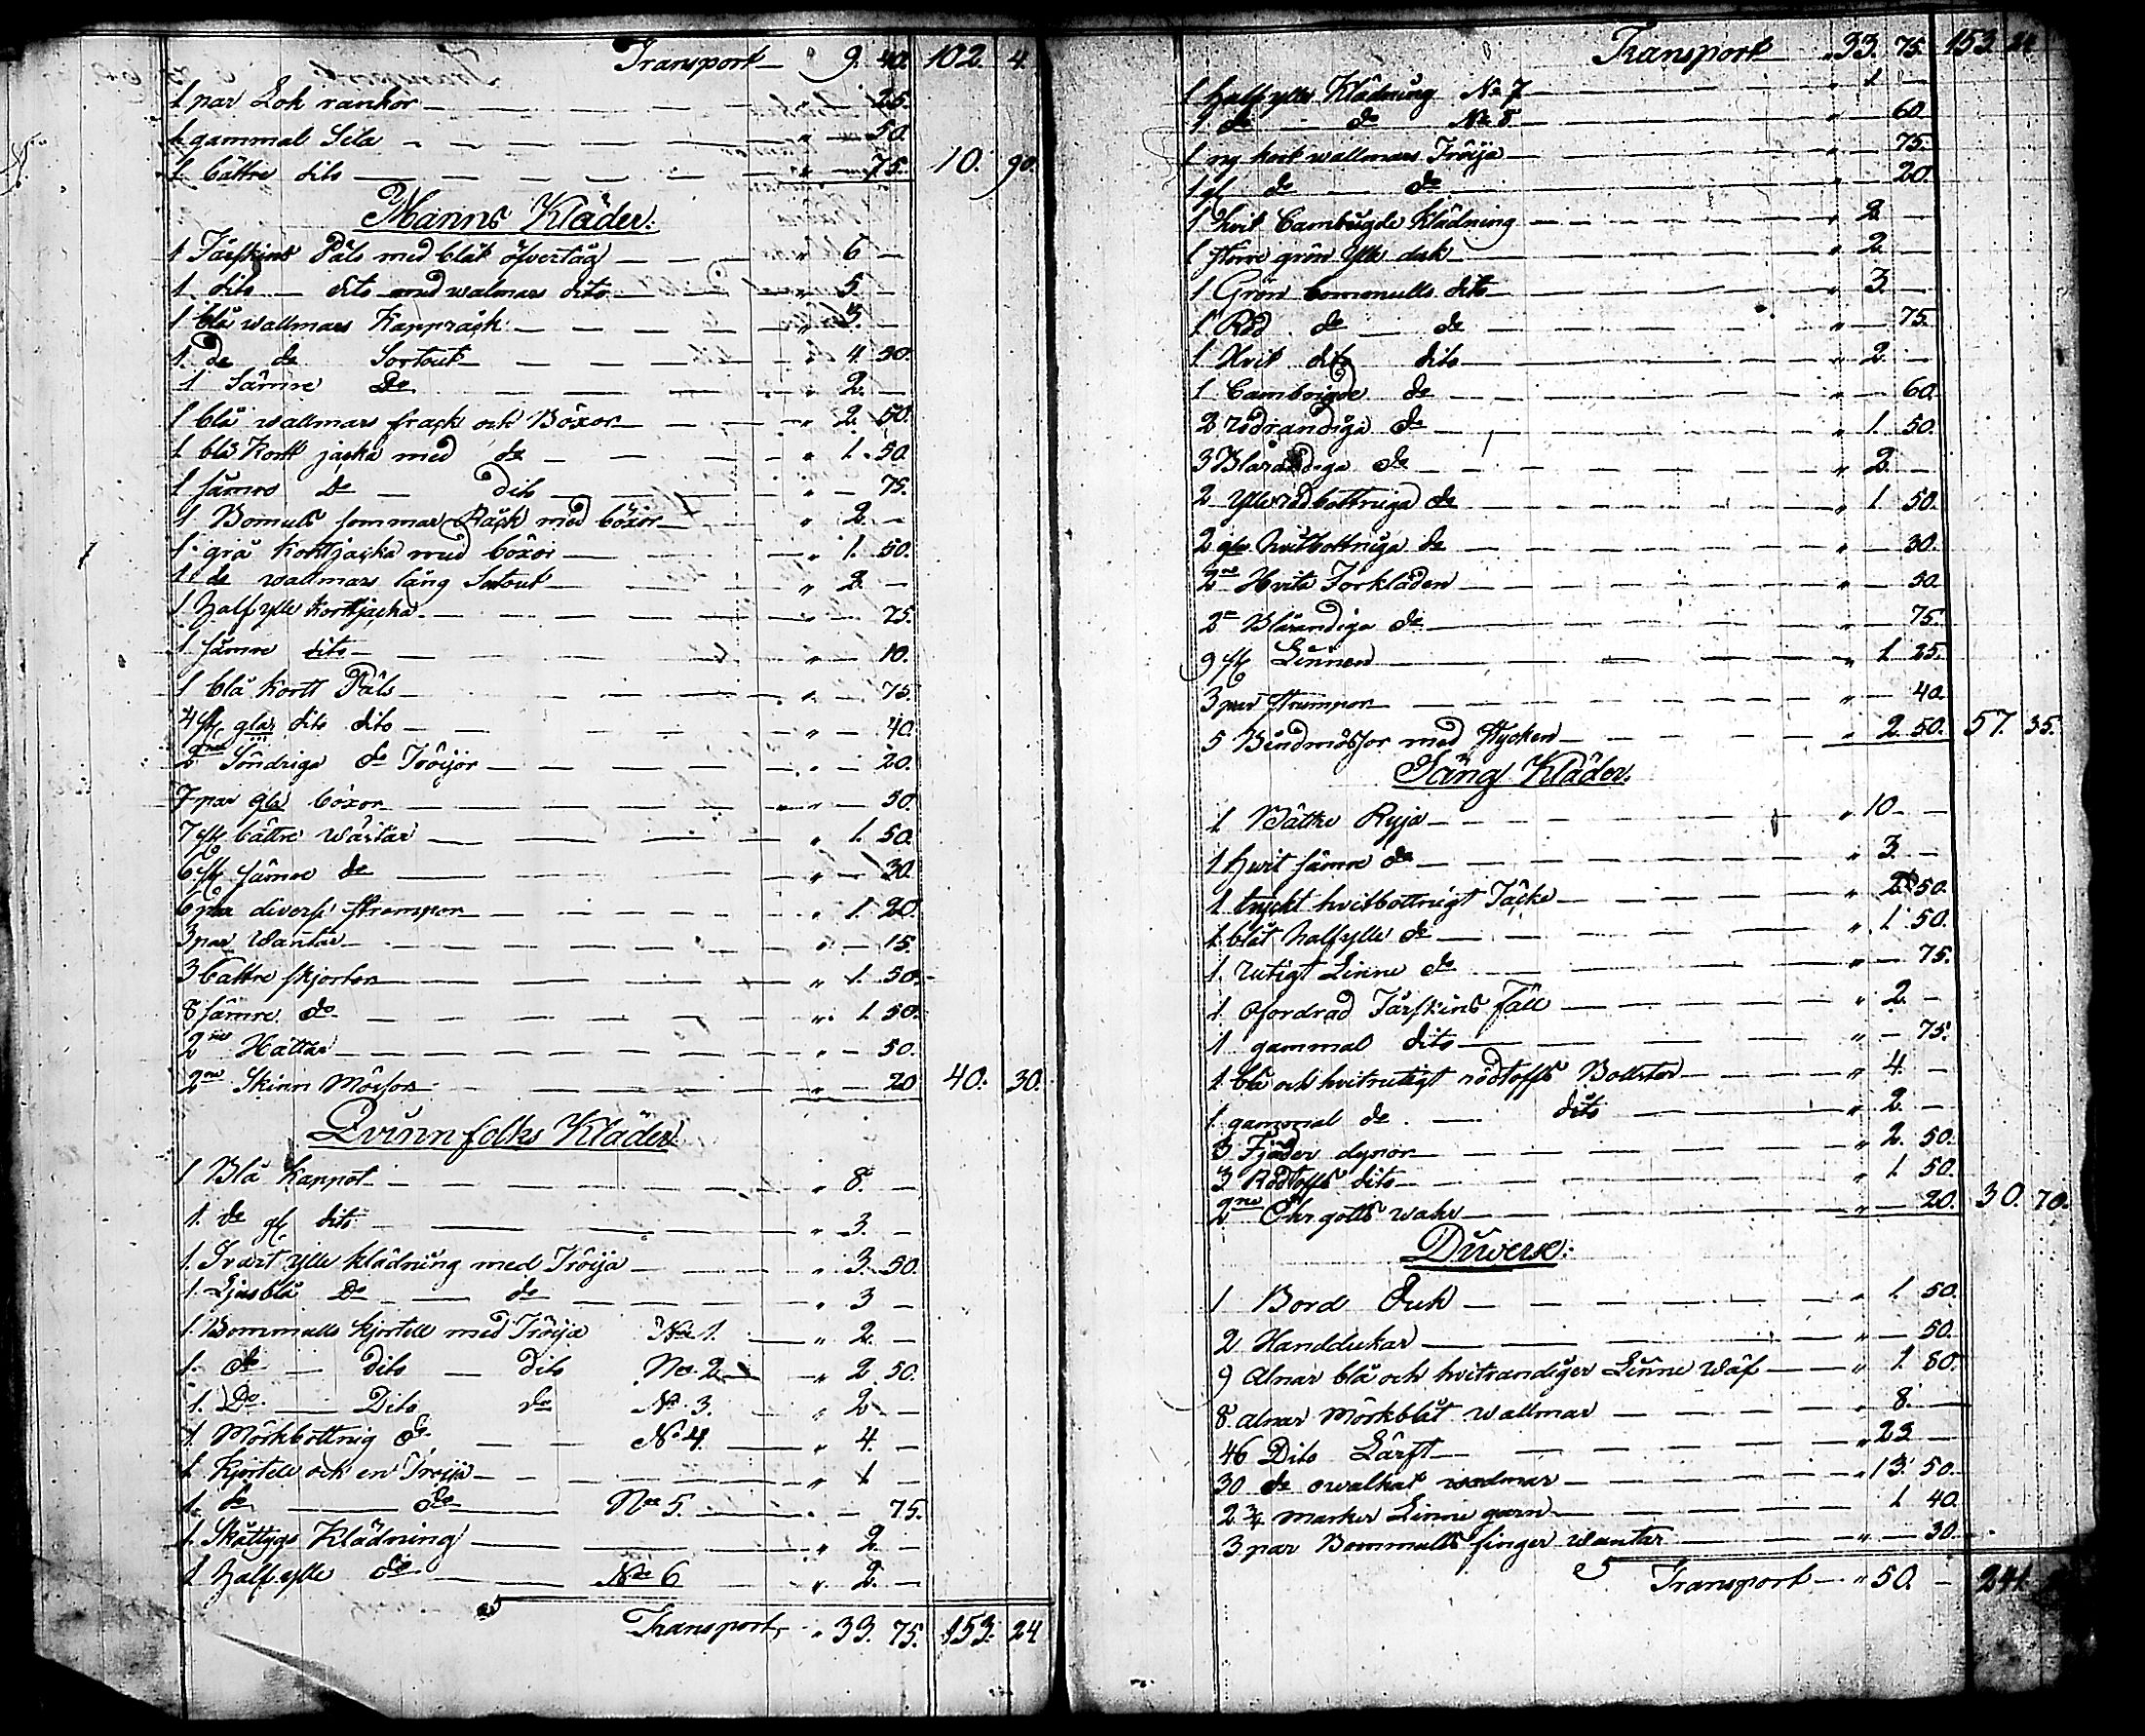 Transport — " 9. 40. 102. 4.
1 par Lok rankor — " — 25.
1 gammal Sela — " — 50.
1 bättre dito — " — 75. 10. 90.
Manns Kläder.
1 Fårskins Päls med blåt öfvertåg — " 6 —
1 dito — dito med walmars dito — " 5 —
1 blå wallmars Kappråck — " 3. —
1. de de Sortout — " 4. 50.
1 Sämre Do — " 2. —
1 blå wallmars frack och Böxor — " 2. 50.
1 blå Kort jacka med do — " 1. 50.
1 sämre Do — Dito — " — 75.
1 Bomulls sommar Råck med böxor — " 2. —
1 grå Kortjacka med böxor — " 1. 50.
1 de wallmars lång Sortout — " 2. —
1 Half ylle kortjacka — " — 75.
1 sämre dito — " — 10.
1 blå kort Päls — " — 75.
4 st gla dito dito — " — 40.
2ne Söndriga do Tröijor — " — 20.
7 par gla böxor — " — 50.
7 st bättre wästar — " 1. 50.
6 st sämre de — " — 30.
6 par diverse strumpor — " 1. 20.
3 par Wantar — " — 15.
3 bättre skjortor — " 1. 50.
8 sämre do — " 1. 50.
2ne Hattar — " — 50.
2ne Skinn Mössor — " — 20 40. 30.
Qvinnfolks Kläder
1 Blå Kappot — " 8. —
1. de gl dito — " 3. —
1. Svart ylle klädning med Tröija — " 3. 50.
1. Ljusblå Do — de — " 3 —
1. Bommulls kjortell med Tröija No 1. — " 2. —
1. do — dito — dito No 2 — " 2. 50.
1. Do — Dito do No 3. — " 2. —
1. Mörkbottnig do — No 4. — " 4. —
1. Kjortell och en Tröija — " 1 —
1. do — do No 5. — " — 75.
1. Klädning — " 2. —
1 Half ylle do — No 6 — " 2. —
Transport, — " 33. 75. 153. 24
Transport — " 33. 75. 153. 24
1 Half ylle Klädning No 7 — " 1 —
1 do — do No 8 — " — 60
1 ny hvit wallmars Tröija — " — 75.
1 gl do — do — " — 20.
1 Hvit Cambrigde klädning — " 2. —
1 större grön ylle duk — " 2. —
1 Grön bommulls dito — " 3. —
1. Röd do — do — " — 75.
1 Hvit dito dito — " 2. —
1 Cambrigde do — " — 60.
2 rödrandiga do — " 1. 50.
3 Blårandiga do — " 2. —
2 Ylle rödbottniga do — " 1. 50.
2 gla hvitbottniga do — " — 30.
2ne Hvita Förkläden — " — 50
2ne Blårandiga do — " — 75.
9 st Linnen — " 1 25.
3 par strumpor — " — 40.
5 Bindmössor med stycken — " 2. 50. 57. 35.
Säng Kläder.
1 Bättre Ryja — " 10 — —
1 hvit sämre do — " 3. —
1 tryckt hvitbottnigt Täcke — " 2. 50.
1 blåt halfylle do — " 1. 50.
1. rutigt Linne do — " — 75.
1. ofordrad Fårskins fäll — " 2. —
1 gammal dito — " — 75.
1 blå och hvitrutigt Bolster — " 4. —
1 gammal do — dito — " 2. —
3 Fjäder dynor — " 2. 50.
3 dito — " 1. 50.
2ne Örngotts wahr — " — 20. 30. 70.
Diverse.
1 Bord Duk — " 1. 50.
2 Handdukar — " — 50.
9 Alnar blå och hvitrandiger Linne Wäf — " 1. 80.
8. alnar Mörkblåt wallmar — " 8. —
46 Dito Lärft — " 23 —
30 do owalkat wadmar — " 13. 50.
2 3/4 marker Linne garn — 1 40.
3 par Bommulls finger wantar — " — 30.
Transport — " 50. — 241.